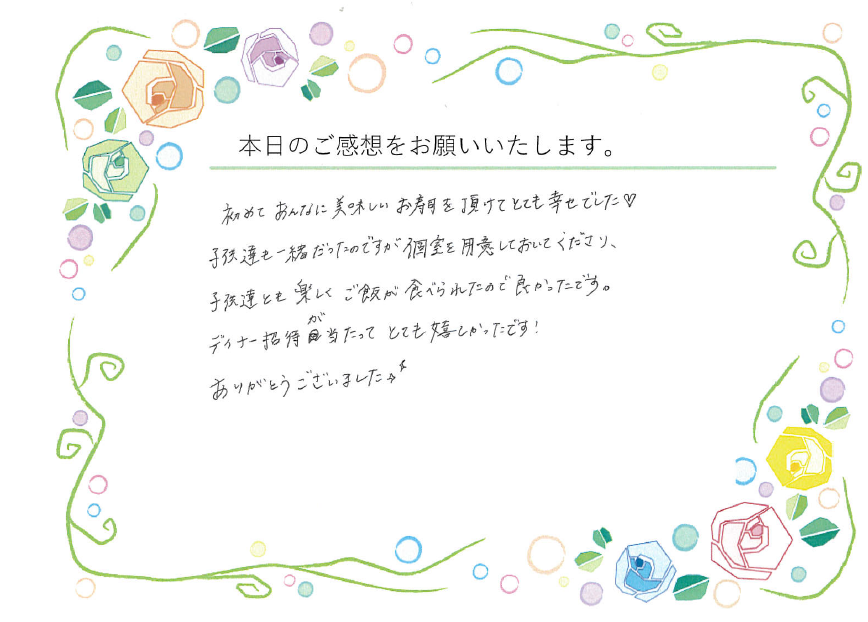 本日のご感想をお願いいたします。
初めてあんなに美味しいお寿司を頂けてとても幸せでした♡
子供達も一緒だったのですが個室を用意しておいてくださり、
子供達とも楽しくご飯が食べられたので良かったです。
ディナー招待が当たってとても嬉しかったです!
ありがとうございました